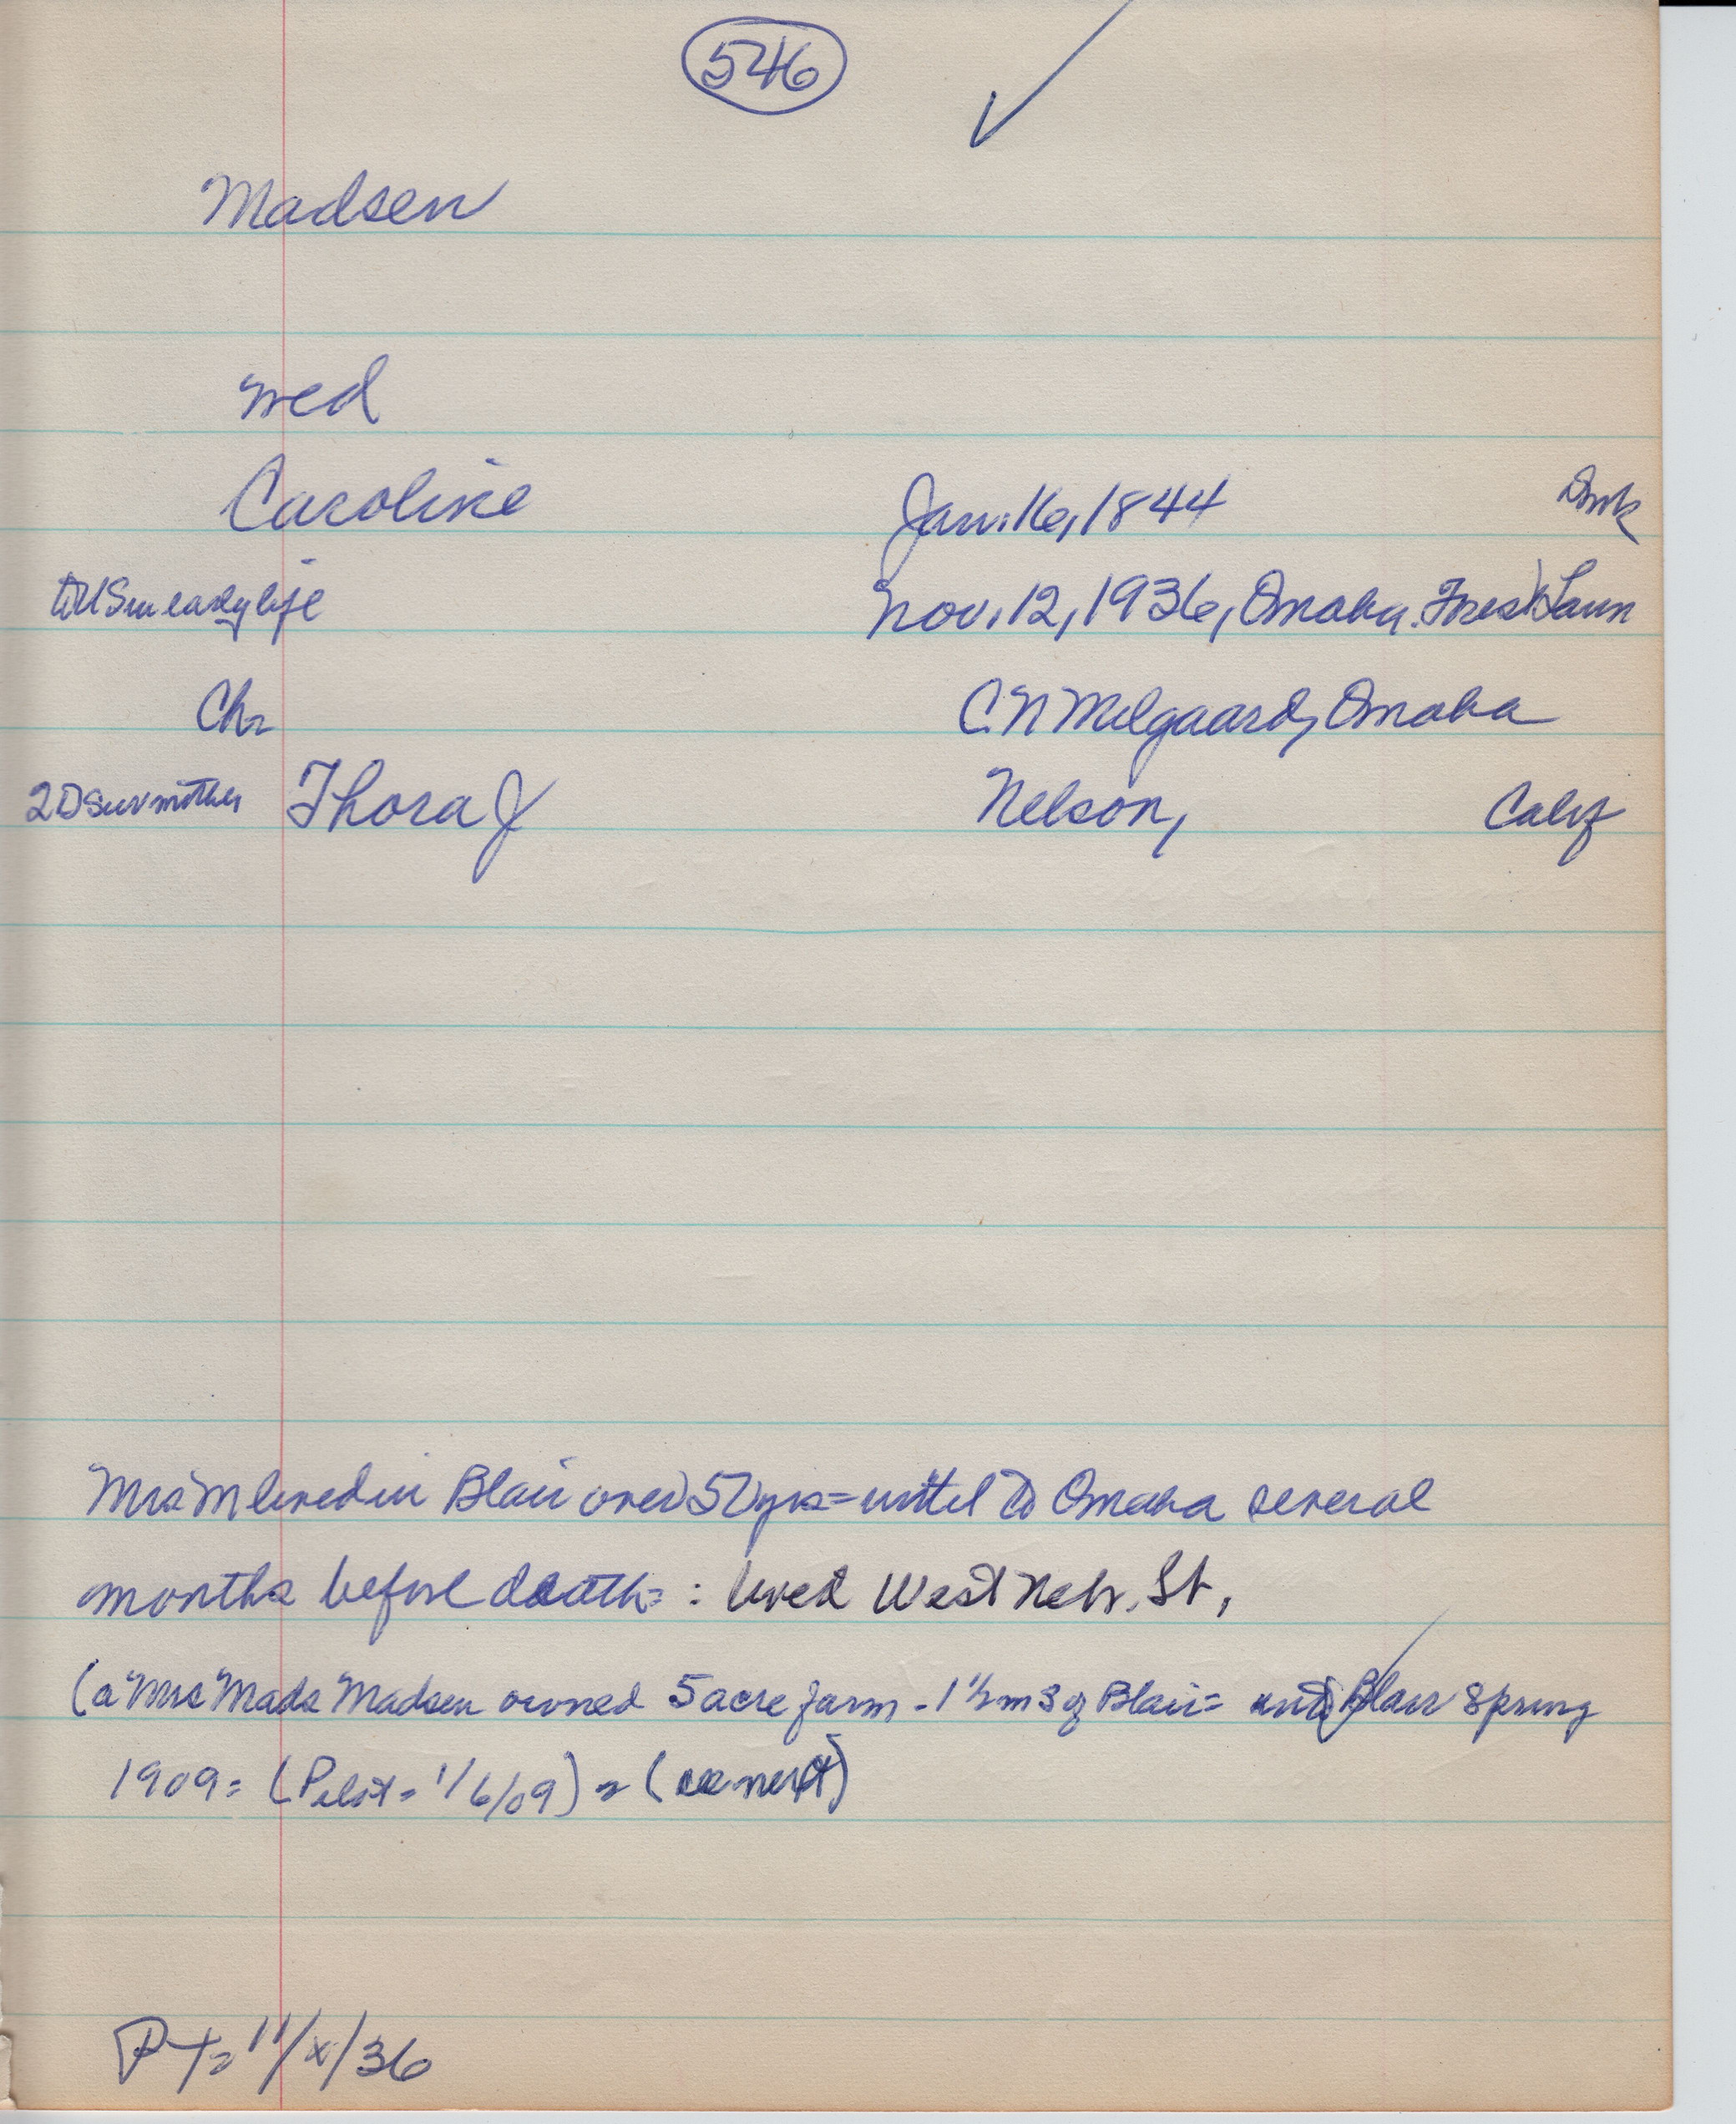 546
Madsen
wed
Caroline Jan. 16, 1844 Dmk
to US in early life Nov. 12, 1936, Omaha. Forest Lawn
Ch= C. N Melgaard, Omaha
2 D surv mother Thora J Nelson, Calif
Mrs M lived in Blair over 50 yrs = until to Omaha several
months before death = : lived West Nebr. St,
(a Mrs Mads Madsen owned 5 acre farm - 1 1/2 m S of Blair = Blair spring
1909 = (Pilot = 1/6/09) =
P-T= 11/x/36